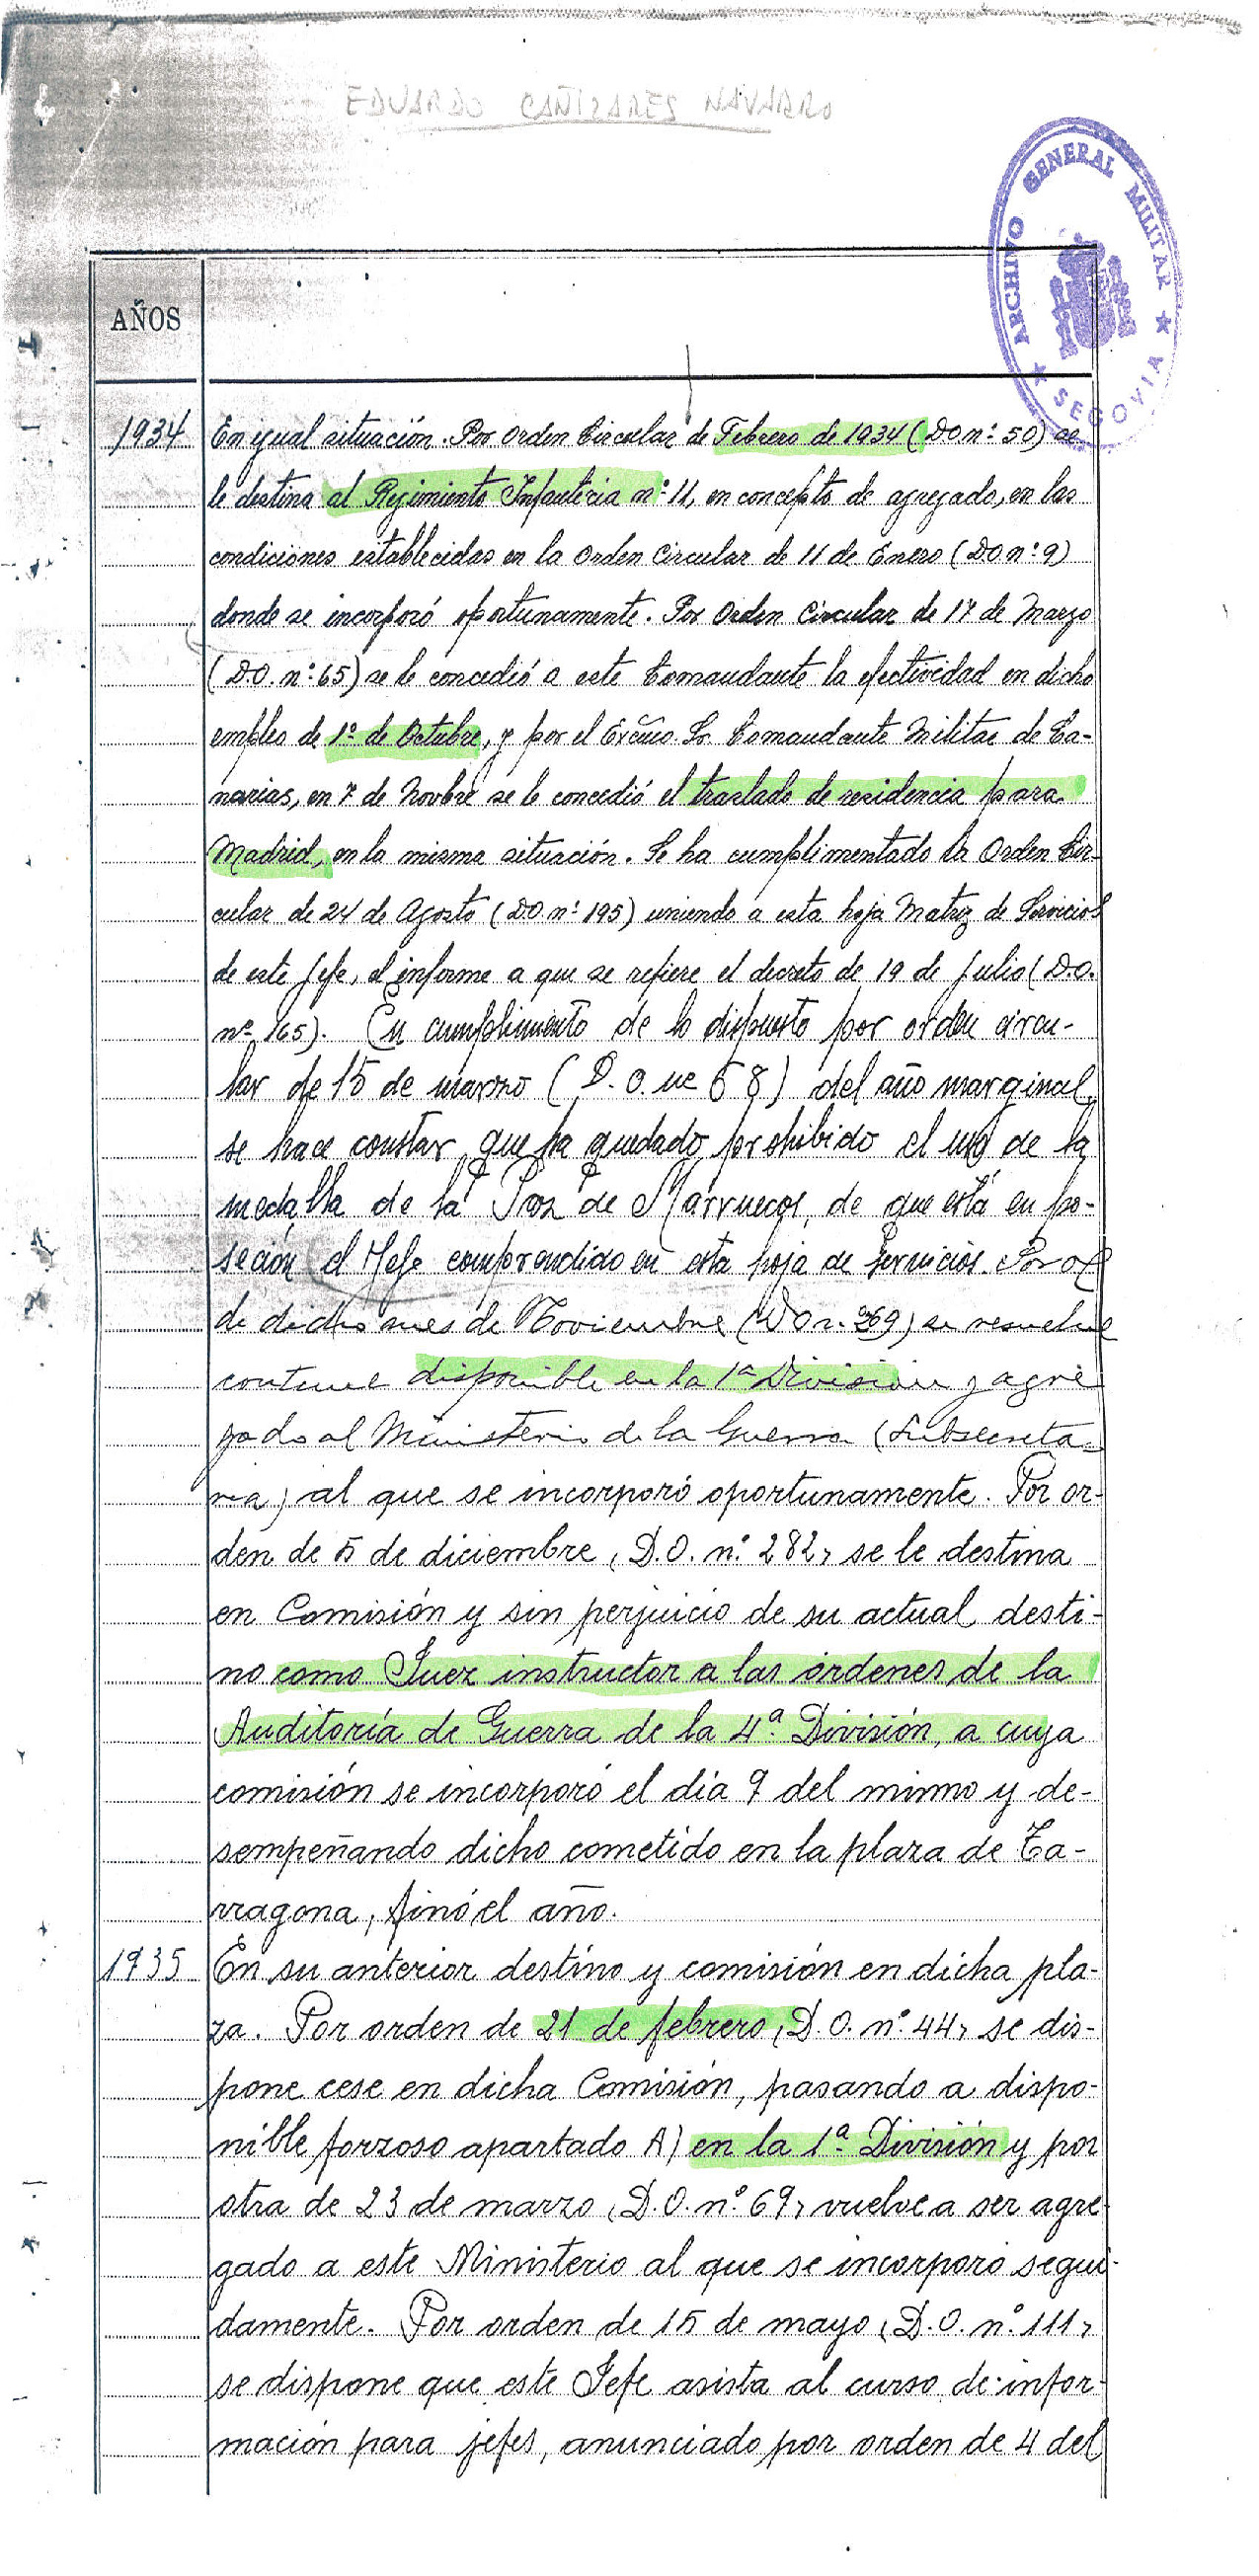 EDUARDO CAÑIZARES NAVARRO
ARCHIVO GENERAL MILITAR ★ SEGOVIA ★
AÑOS
1934 En igual situación. Por Orden Circular de Febrero de 1934 (D.O. nº 50) se
le destina al Regimiento Infantería nº 11, en concepto de agregado, en las
condiciones establecidas en la Orden Circular de 11 de Enero (D.O. nº 9)
donde se incorporó oportunamente. Por Orden Circular de 17 de Marzo
(D.O. nº 65) se le concedió a este Comandante la efectividad en dicho
empleo de 1º de Octubre, y por el Excmo. Sr. Comandante Militar de Ca-
narias, en 7 de Novbre se le concedió el traslado de residencia para
Madrid, en la misma situación. Se ha cumplimentado la Orden Cir-
cular de 24 de Agosto (D.O. nº 195) uniendo a esta hoja Matriz de Servicios
de este Jefe, el informe a que se refiere el decreto de 19 de Julio (D.O.
nº 165). En cumplimiento de lo dispuesto por orden circu-
lar de 15 de marzo (D.O. nº 68) del año marginal,
se hace constar que ha quedado prohibido el uso de la
medalla de la Paz de Marruecos, de que está en po-
seción el Jefe comprendido en esta hoja de servicios. Por O.C.
de dicho mes de Noviembre (D O n. 269) se resuelve
continue disponible en la 1ª División y agre
gado al Ministerio de la Guerra (Subsecreta-
ria) al que se incorporó oportunamente. Por or-
den de 5 de diciembre, (D.O. nº 282), se le destina
en Comisión y sin perjuicio de su actual desti-
no como Juez instructor a las órdenes de la
Auditoría de Guerra de la 4ª División, a cuya
comisión se incorporó el día 9 del mismo y de-
sempeñando dicho cometido en la plaza de Ta-
rragona, finó el año.
1935 En su anterior destino y comisión en dicha pla-
za. Por orden de 21 de febrero, (D.O. nº 44), se dis-
pone cese en dicha Comisión, pasando a dispo-
nible forzoso apartado A) en la 1ª División y por
otra de 23 de marzo, (D.O. nº 69), vuelve a ser agre-
gado a este Ministerio al que se incorporó segui-
damente. Por orden de 15 de mayo, (D.O. nº 111),
se dispone que este Jefe asista al curso de infor-
mación para jefes, anunciado por orden de 4 del